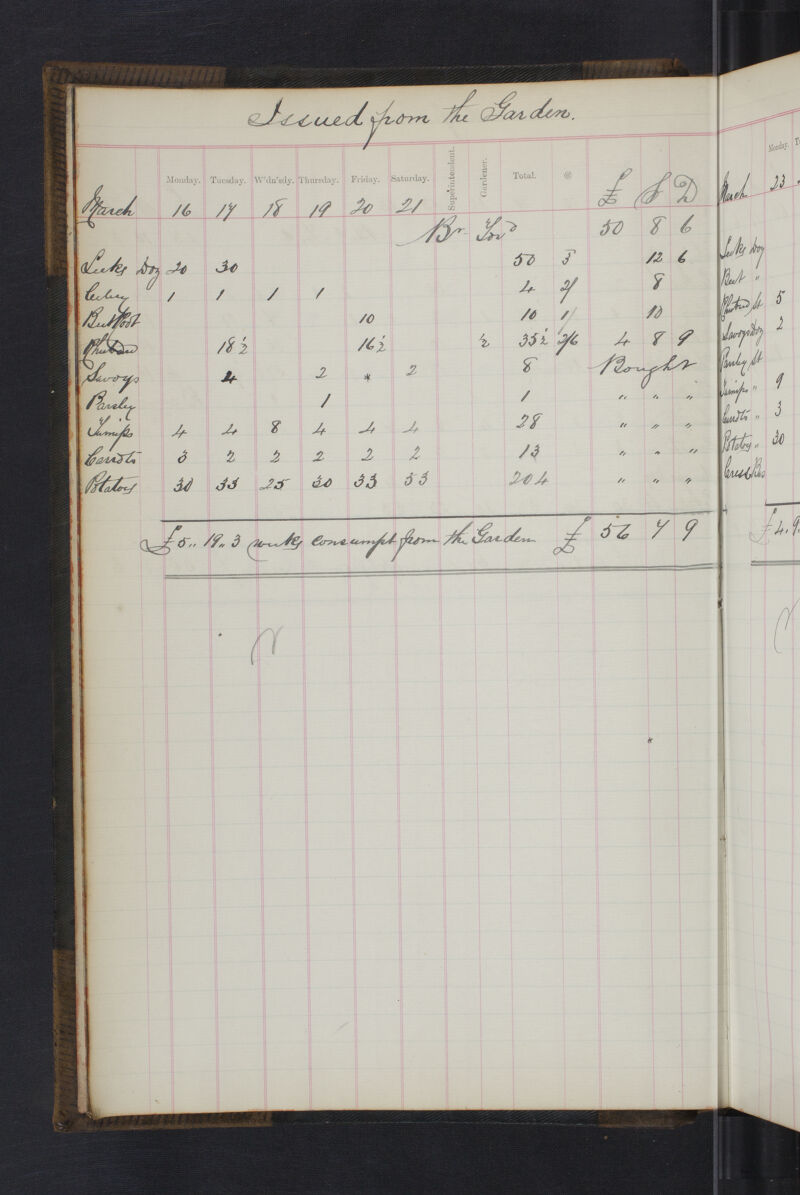 Issued from the Garden.
Monday. Tuesday. W'dn'sdy. Thursday. Friday. Saturday. Superintendent. Gardener. Total. @ £ S D
March 16 17 18 19 20 21
Br Ford 50 8 6
Leeks Doz 20 30 50 3 12 6
Celery 1 1 1 1 4 2/ 8
Beet Root 10 10 1/ 10
Rhubarb 18½ 16½ ½ 35½ 2/6 4 8 9
Savoys 4 2 * 2 8 Bought
Parsley 1 1 " " "
Turnips 4 4 8 4 4 4 28 " " "
Carrots 3 2 2 2 2 2 13 " " "
Potatoes 30 33 25 30 33 53 204 " " "
£5 .. 19 .. 3 weeks consumpt from the Garden £ 56 7 9
Monday. T
March 23
Leeks Doz
Beet "
Rhubarb St 5
Savoys Doz 2
Parsley St
Turnips " 9
Carrots " 3
Potatoes " 30
Cress Bas
£4. 9.